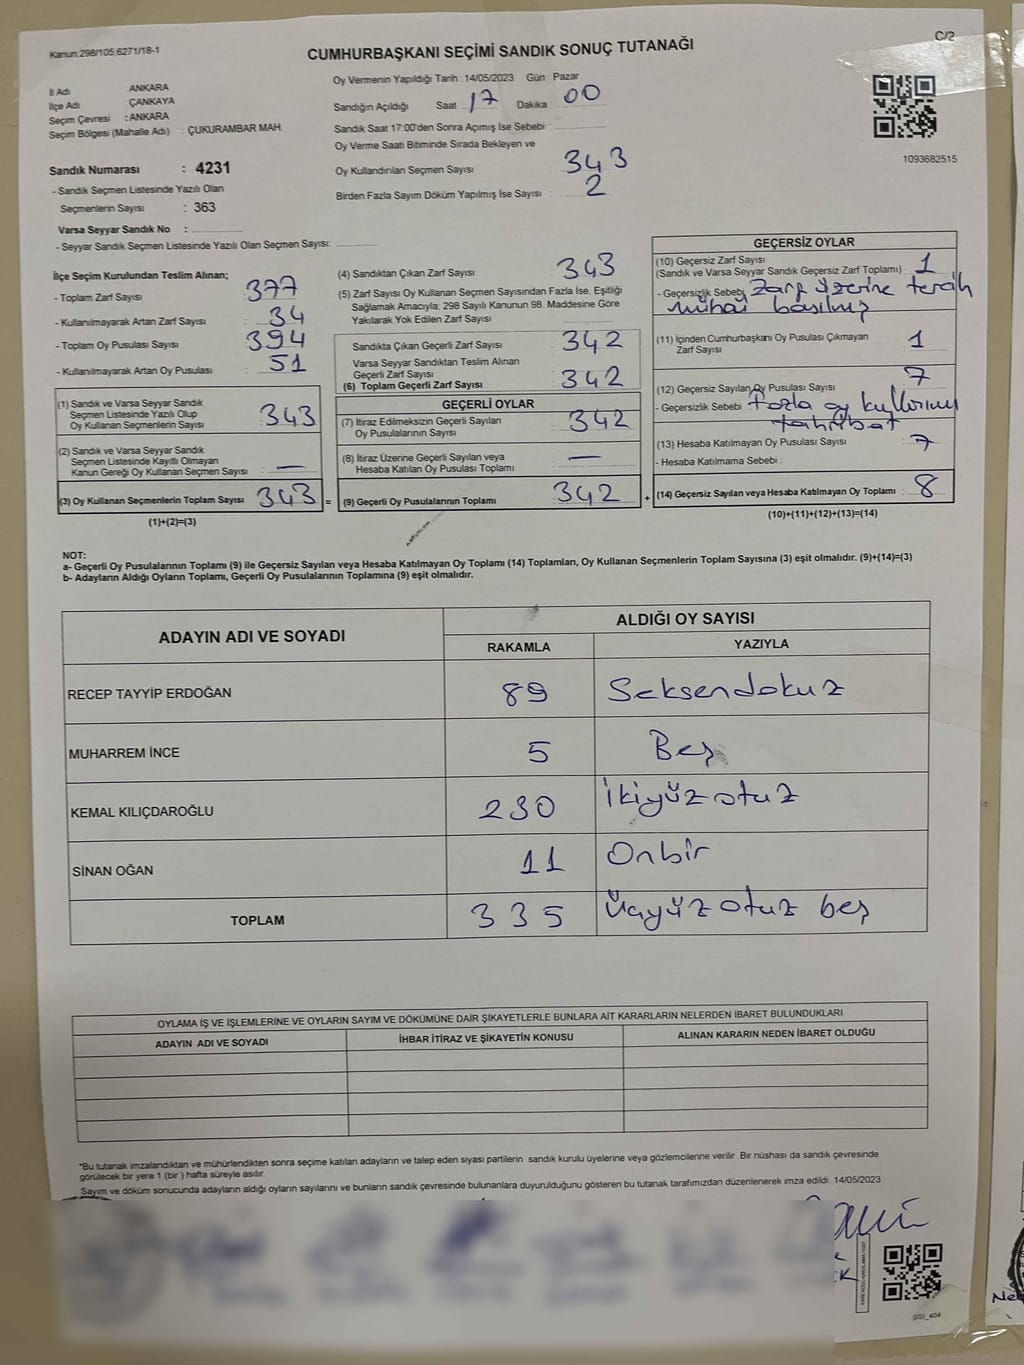 Kanun:298/105;6271/18-1
C/2
CUMHURBAŞKANI SEÇİMİ SANDIK SONUÇ TUTANAĞI
İl Adı ANKARA
İlçe Adı ÇANKAYA
Seçim Çevresi : ANKARA
Seçim Bölgesi (Mahalle Adı) : ÇUKURAMBAR MAH.
Sandık Numarası : 4231
- Sandık Seçmen Listesinde Yazılı Olan
Seçmenlerin Sayısı : 363
Varsa Seyyar Sandık No :
- Seyyar Sandık Seçmen Listesinde Yazılı Olan Seçmen Sayısı:
Oy Vermenin Yapıldığı Tarih : 14/05/2023 Gün : Pazar
Sandığın Açıldığı Saat 17 Dakika 00
Sandık Saat 17:00'den Sonra Açımış İse Sebebi
Oy Verme Saati Bitiminde Sırada Bekleyen ve
Oy Kullandırılan Seçmen Sayısı : 343
Birden Fazla Sayım Döküm Yapılmış İse Sayısı : 2
1093682515
İlçe Seçim Kurulundan Teslim Alınan;
- Toplam Zarf Sayısı : 377
- Kullanılmayarak Artan Zarf Sayısı : 34
- Toplam Oy Pusulası Sayısı : 394
- Kullanılmayarak Artan Oy Pusulası : 51
(1) Sandık ve Varsa Seyyar Sandık
Seçmen Listesinde Yazılı Olup
Oy Kullanan Seçmenlerin Sayısı : 343
(2) Sandık ve Varsa Seyyar Sandık
Seçmen Listesinde Kayıtlı Olmayan
Kanun Gereği Oy Kullanan Seçmen Sayısı : —
(3) Oy Kullanan Seçmenlerin Toplam Sayısı : 343 =
(1)+(2)=(3)
(4) Sandıktan Çıkan Zarf Sayısı : 343
(5) Zarf Sayısı Oy Kullanan Seçmen Sayısından Fazla İse, Eşitliği
Sağlamak Amacıyla; 298 Sayılı Kanunun 98. Maddesine Göre
Yakılarak Yok Edilen Zarf Sayısı
Sandıkta Çıkan Geçerli Zarf Sayısı : 342
Varsa Seyyar Sandıktan Teslim Alınan
Geçerli Zarf Sayısı
(6) Toplam Geçerli Zarf Sayısı : 342
GEÇERLİ OYLAR
(7) İtiraz Edilmeksizin Geçerli Sayılan
Oy Pusulalarının Sayısı : 342
(8) İtiraz Üzerine Geçerli Sayılan veya
Hesaba Katılan Oy Pusulası Toplamı : —
(9) Geçerli Oy Pusulalarının Toplamı : 342 +
GEÇERSİZ OYLAR
(10) Geçersiz Zarf Sayısı
(Sandık ve Varsa Seyyar Sandık Geçersiz Zarf Toplamı) : 1
- Geçersizlik Sebebi Zarf üzerine tercih
mühür basılmış
(11) İçinden Cumhurbaşkanı Oy Pusulası Çıkmayan
Zarf Sayısı 1
(12) Geçersiz Sayılan Oy Pusulası Sayısı : 7
- Geçersizlik Sebebi Fazla oy kullanımı
tahribat
(13) Hesaba Katılmayan Oy Pusulası Sayısı : 7
- Hesaba Katılmama Sebebi :
(14) Geçersiz Sayılan veya Hesaba Katılmayan Oy Toplamı : 8
(10)+(11)+(12)+(13)=(14)
NOT:
a- Geçerli Oy Pusulalarının Toplamı (9) ile Geçersiz Sayılan veya Hesaba Katılmayan Oy Toplamı (14) Toplamları, Oy Kullanan Seçmenlerin Toplam Sayısına (3) eşit olmalıdır. (9)+(14)=(3)
b- Adayların Aldığı Oyların Toplamı, Geçerli Oy Pusulalarının Toplamına (9) eşit olmalıdır.
ADAYIN ADI VE SOYADI ALDIĞI OY SAYISI
RAKAMLA YAZIYLA
RECEP TAYYİP ERDOĞAN 89 Seksendokuz
MUHARREM İNCE 5 Beş
KEMAL KILIÇDAROĞLU 230 İkiyüz otuz
SİNAN OĞAN 11 Onbir
TOPLAM 335 Üçyüz otuz beş
OYLAMA İŞ VE İŞLEMLERİNE VE OYLARIN SAYIM VE DÖKÜMÜNE DAİR ŞİKAYETLERLE BUNLARA AİT KARARLARIN NELERDEN İBARET BULUNDUKLARI
ADAYIN ADI VE SOYADI İHBAR İTİRAZ VE ŞİKAYETİN KONUSU ALINAN KARARIN NEDEN İBARET OLDUĞU
*Bu tutanak imzalandıktan ve mühürlendikten sonra seçime katılan adayların ve talep eden siyasi partilerin sandık kurulu üyelerine veya gözlemcilerine verilir. Bir nüshası da sandık çevresinde
görülecek bir yere 1 (bir ) hafta süreyle asılır.
Sayım ve döküm sonucunda adayların aldığı oyların sayılarını ve bunların sandık çevresinde bulunanlara duyurulduğunu gösteren bu tutanak tarafımızdan düzenlenerek imza edildi. 14/05/2023